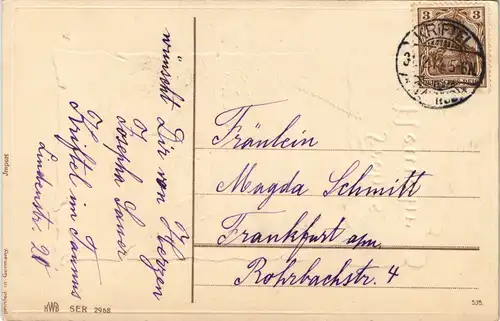 wünscht Dir von Herzen
Josepha Sauer
Kriftel im Taunus
Lindenstr. 20
Fräulein
Magda Schmitt
Frankfurt a/m.
Rohrbachstr. 4
3 3
KRIFTEL
Import
Printed in Germany.
HWB SER 2968